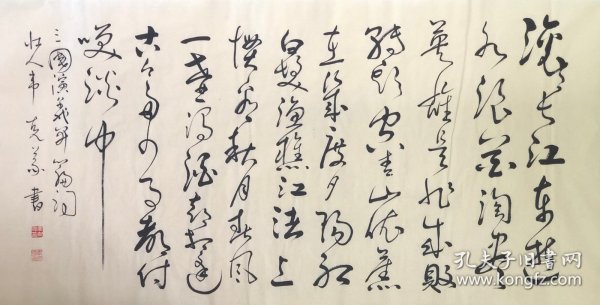 滚滚长江东逝
水浪花淘尽
英雄是非成败
转头空青山依旧
在几度夕阳红
白发渔樵江渚上
惯看秋月春风
一壶浊酒喜相逢
古今多少事都付
笑谈中
三國演义开篇词
壮人韦克义書
孔夫子旧书网
www.kongfz.com